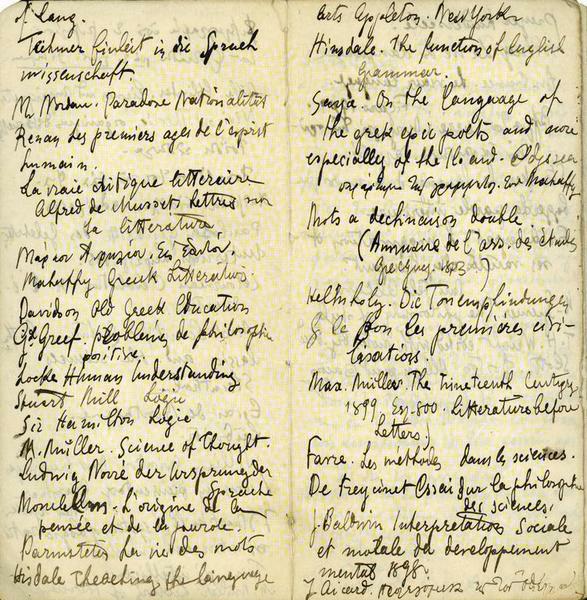 of Lang.
Techmer Einleit in die Sprach
wissenschaft.
M. Nordau. Paradoxe Nationalität
Renan Les premiers ages de l'esprit
humain.
La vraie critique litteraire
Alfred de Musset Lettres sur
la litterature,
Mahaffy Greek Literatur.
Davidson Old Greek Education
Greef. problemes de philosophie
positive.
Locke Human Understanding
Stuart Mill Logic
Sir Hamilton Logic
M. Müller. Science of Thought.
Ludwig Noiré der Ursprung der
Sprache
L'origine de la
pensée et de la parole.
Darmsteter La vie des mots
Hisdale Theaching the language
arts Appleton New York
Hinsdale. The function of English
Grammar.
On the language of
the greek epic poets and more
especially of the Il. and. Odyssea
Mahaffy
Mots a declinaison double
(Annuaire de l'ass. des études
Grecques 1883)
Helmholz. Die Tonempfindungen
G. le Bon les premières civi-
lisations.
Max. Müller. The Nineteenth Century
1899. 800. Litterature before
Letters.)
Favre. Les méthodes dans les sciences.
De Freycinet Essai sur la philosophie
des sciences,
J. Baldwin Interpretation Sociale
et morale du developpement
mental 1898.
J Aicard.